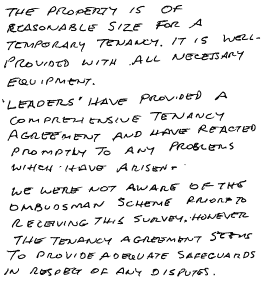 THE PROPERTY IS OF
REASONABLE SIZE FOR A
TEMPORARY TENANCY. IT IS WELL-
PROVIDED WITH ALL NECESSARY
EQUIPMENT.
'LEADERS' HAVE PROVIDED A
COMPREHENSIVE TENANCY
AGREEMENT AND HAVE REACTED
PROMPTLY TO ANY PROBLEMS
WHICH HAVE ARISEN.
WE WERE NOT AWARE OF THE
OMBUDSMAN SCHEME PRIOR TO
RECEIVING THIS SURVEY. HOWEVER
THE TENANCY AGREEMENT SEEMS
TO PROVIDE ADEQUATE SAFEGUARDS
IN RESPECT OF ANY DISPUTES.